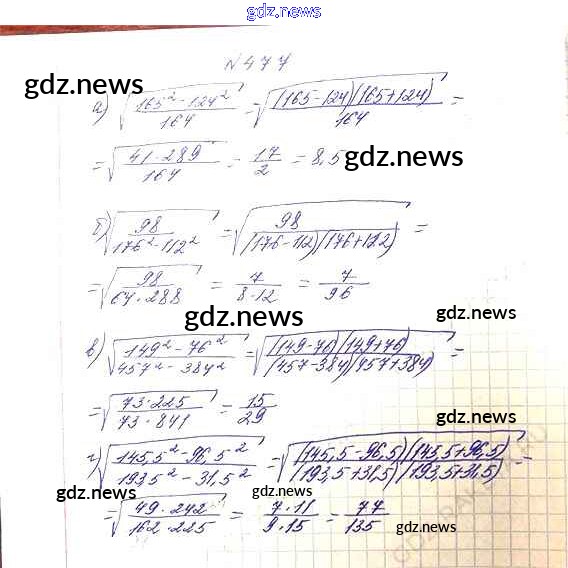 gdz.news
№ 477
gdz.news
а) √((165² - 124²)/164) = √((165-124)(165+124)/164) =
= √((41 · 289)/164) = 17/2 = 8,5
gdz.news
б) √(98/(176² - 112²)) = √(98/((176-112)(176+112))) =
= √(98/(64 · 288)) = 7/(8·12) = 7/96
gdz.news
в) √((149² - 76²)/(457² - 384²)) = √((149-76)(149+76)/((457-384)(457+384))) =
= √((73 · 225)/(73 · 841)) = 15/29
gdz.news
г) √((145,5² - 96,5²)/(193,5² - 31,5²)) = √((145,5-96,5)(145,5+96,5)/((193,5+31,5)(193,5+31,5))) =
gdz.news
= √((49 · 242)/(162 · 225)) = (7·11)/(9·15) = 77/135
gdz.news
gdz.news